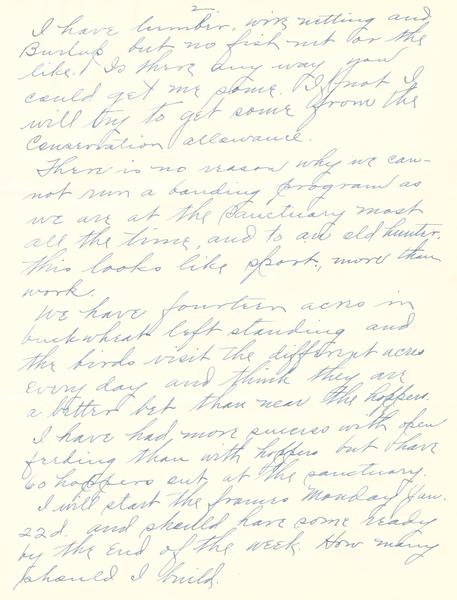 2.
I have lumber, wire netting and
Burlap but no fish net or the
like. Is there any way you
could get me some. If not I
will try to get some from the
Conservation allowance.
There is no reason why we can-
not run a banding program as
we are at the Sanctuary most
all the time, and to an old hunter,
this looks like sport, more than
work.
We have fourteen acres in
buckwheat left standing and
the birds visit the different acres
every day and think they are
a better bet than near the hoppers.
I have had more success with open
feeding than with hoppers but I have
60 hoppers out at the sanctuary.
I will start the frames Monday Jan.
22d. and should have some ready
by the end of the week. How many
should I build.